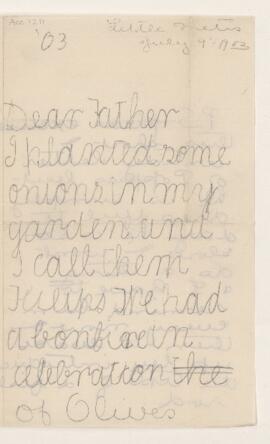 Acc. 1211
Little Metis
'03
July 9th 1903
Dear Father
I planted some
onions in my
garden and
I call them
Tulips We had
a bonfire in
celebration the
of Olives